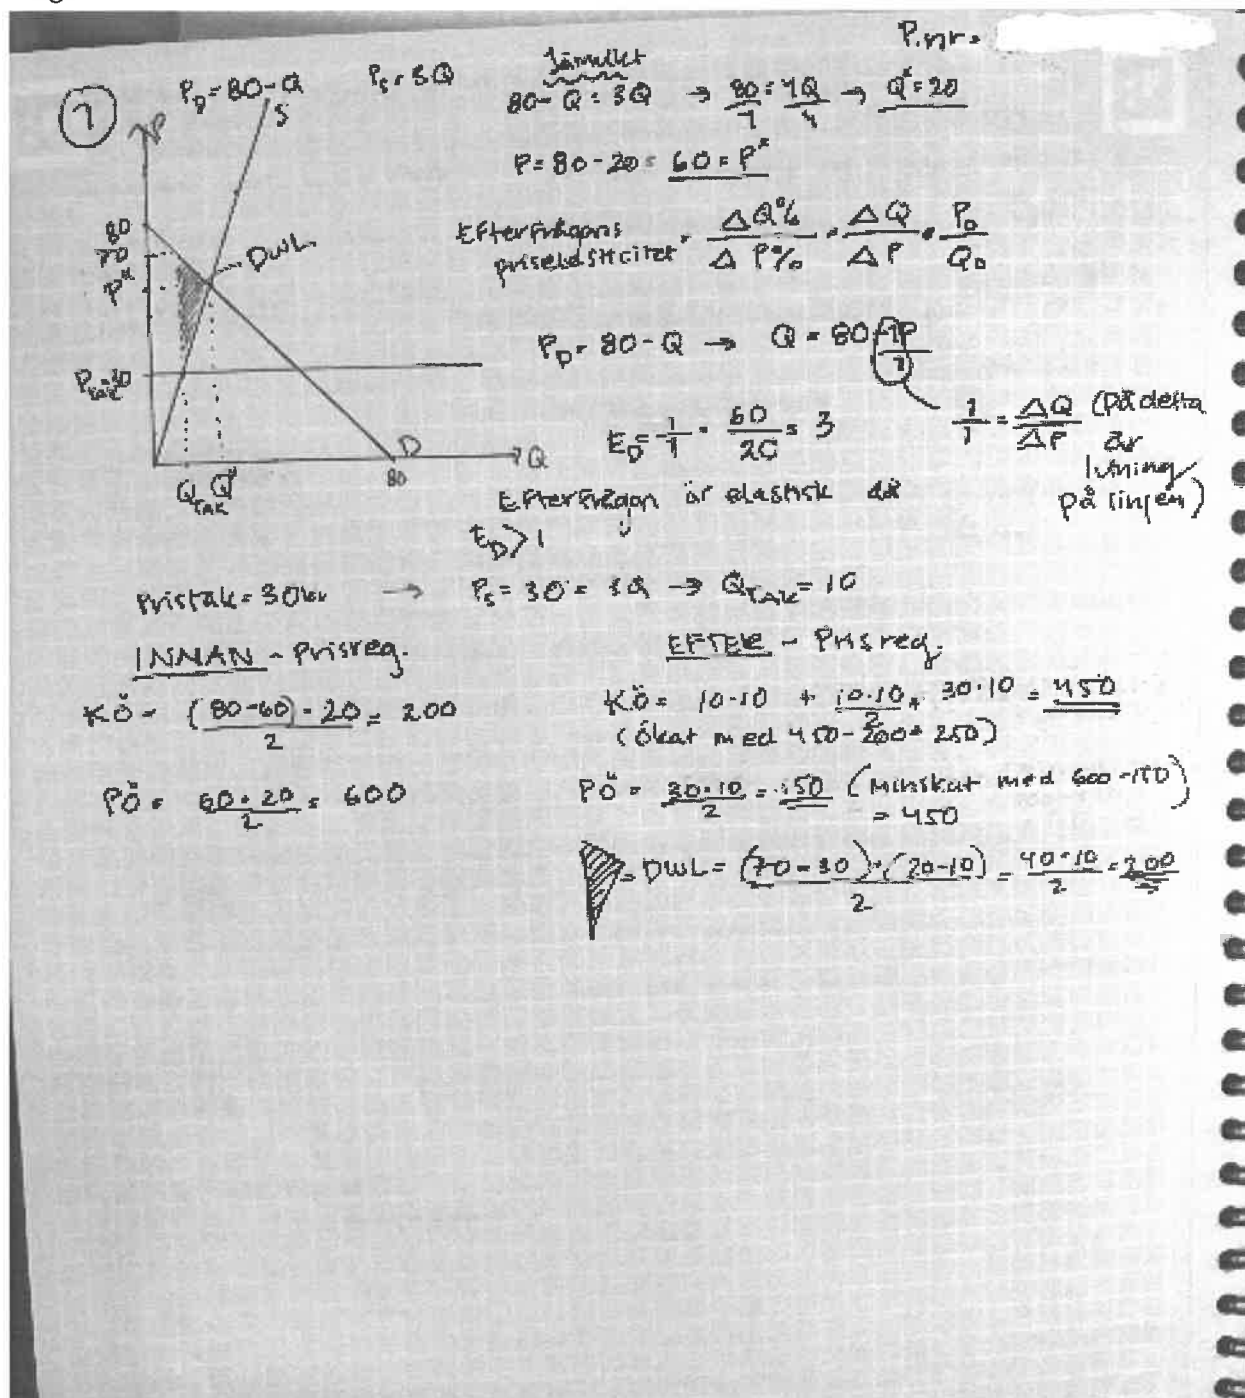 P.nr=
1
P_D=80-Q P_S=3Q
Jämvikt
80-Q=3Q → 80/1=4Q/4 → Q*=20
P=80-20=60=P*
P
S
80
70
P*
DWL
P_tak=30
Q_TAK Q*
80
D
Q
Efterfrågans priselasticitet = ΔQ%/ΔP% = ΔQ/ΔP · P_0/Q_0
P_D=80-Q → Q=80-1P/1
1/1=ΔQ/ΔP (På detta är lutning på linjen)
E_D=1/1 · 60/20=3
Efterfrågan är elastisk då
E_D>1
Pristak=30kr → P_S=30=3Q → Q_TAK=10
INNAN - Prisreg.
EFTER - Prisreg.
KÖ= (80-60)·20/2=200
KÖ= 10·10 + 10·10/2 + 30·10=450
(Ökat med 450-200=250)
PÖ= 60·20/2=600
PÖ= 30·10/2=150 (minskat med 600-150)
=450
=DWL= (70-30)·(20-10)/2=40·10/2=200